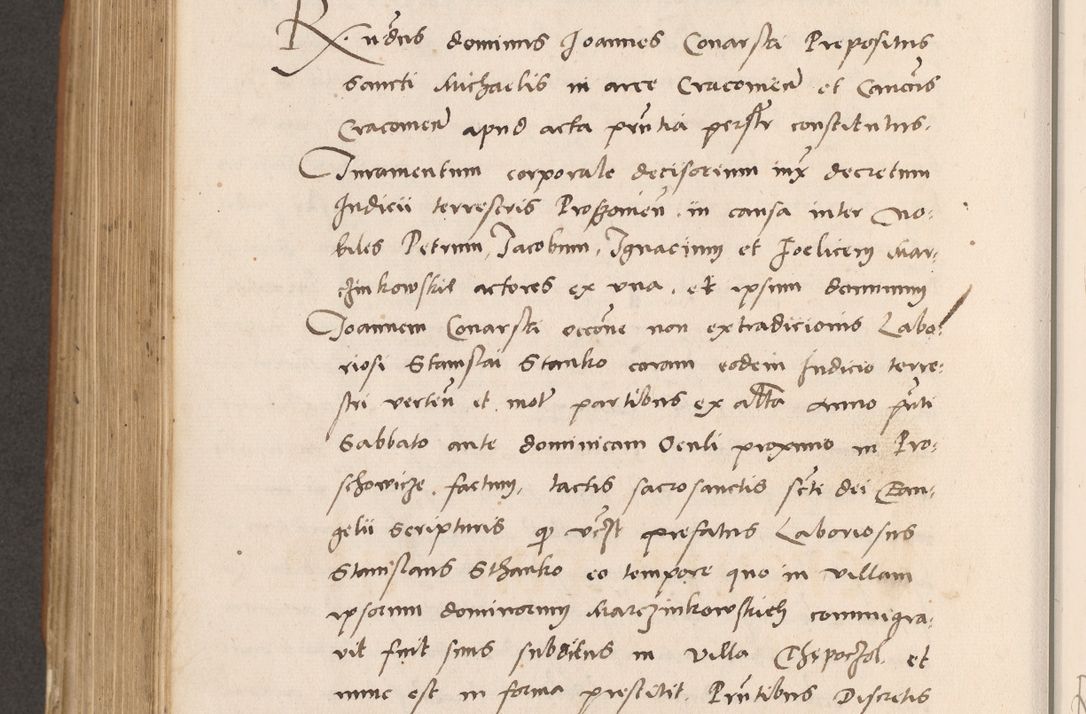 R. undus dominus Joannes Conarski Prepositus
sancti Michaelis in arce Cracovien et Canonicus
Cracovien apud acta pntia personalr constitutus,
Juramentum corporale decisorium iux decretum
Judicii terrestris Proszovien. in causa inter No:
biles Petrum, Jacobum, Ignacium et Foelicem Mar:
czinkowskie actores ex una, et ipsum dominum
Joannem Conarski occone non extradicionis Labo:
riosi Stanislai Stanko coram eodem Judicio terre:
stri verten et mot partibus ex altta Anno pnti
Sabbato ante dominicam Oculi proximo in Pro:
schowicze factum, tactis sacrosanctis scte dei Ewan:
gelii scripturis q prefatus Laboriosus
Stanislaus Sthanko eo tempore quo in villam
ipsorum dominorum Marczinkowskich commigra:
vit fuit suus subditus in villa et
nunc est in forma prestitit. Pntibus Discretis